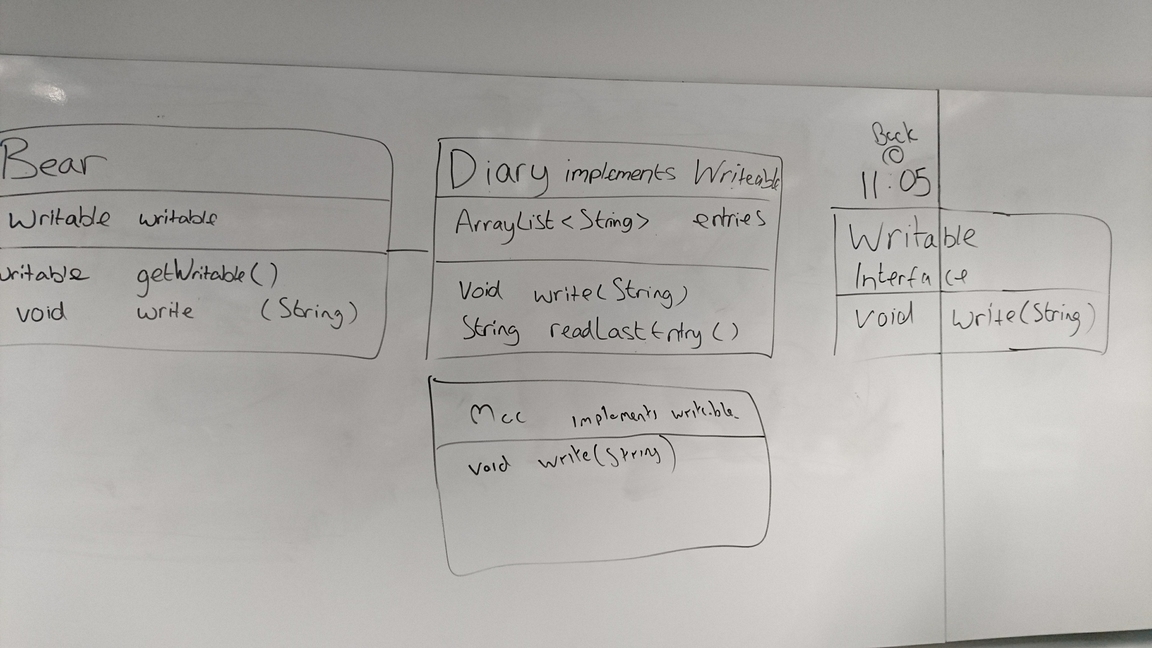 Bear
Writable writable
writable getWritable()
void write (String)
Diary implements Writeable
ArrayList<String> entries
Void write(String)
String readLastEntry()
Mcc implements writable
void write(String)
Back
@
11:05
Writable
Interface
Void write(String)